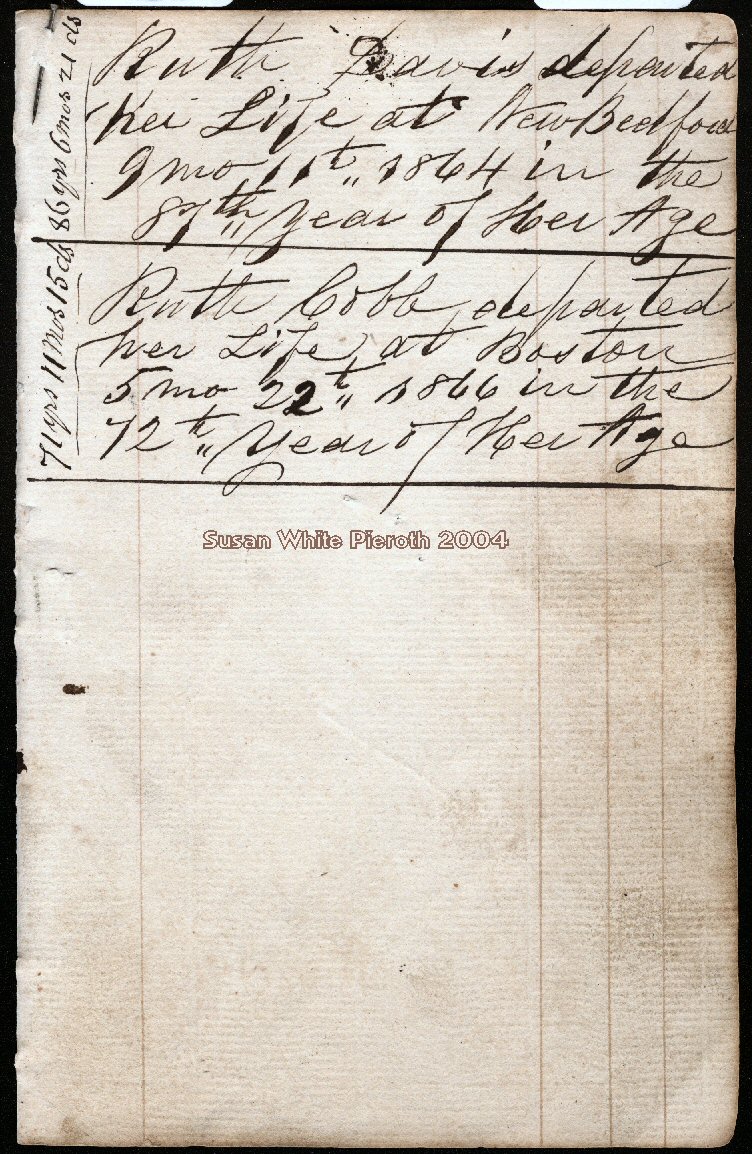 Ruth Davis departed
her Life at New Bedford
9 mo 11th 1864 in the
87th Year of Her Age
86 yrs 6 mos 21 ds
Ruth Cobb departed
her Life at Boston
5 mo 22th 1866 in the
72th Year of Her Age
71 yrs 11 mos 15 ds
Susan White Pieroth 2004